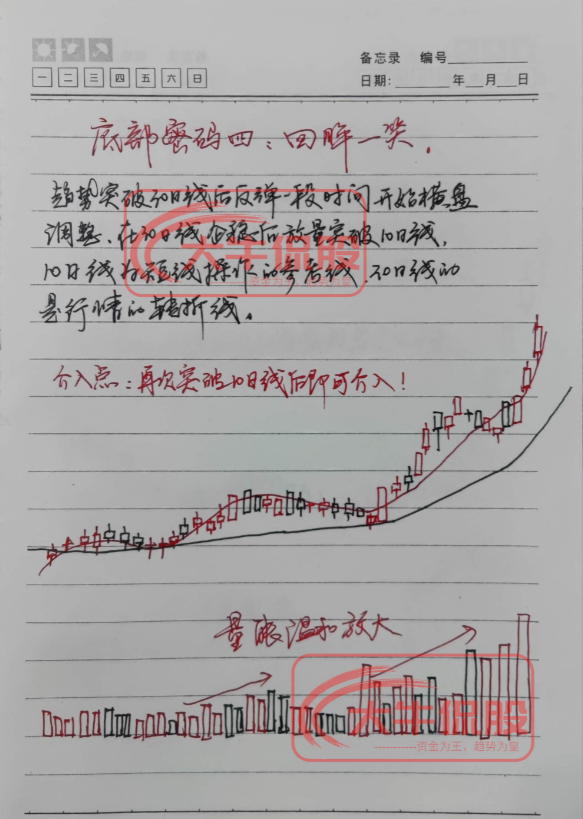 备忘录 编号
一 二 三 四 五 六 日
日期: 年 月 日
底部密码四:回眸一笑.
趋势突破30日线后反弹一段时间开始横盘
调整、在30日线企稳后放量突破10日线,
10日线为短线操作的参考线.30日线的
是行情的转折线.
介入点:再次突破10日线后即可介入!
大牛侃股
资金为王,趋势为皇
量能温和放大
大牛侃股
资金为王,趋势为皇